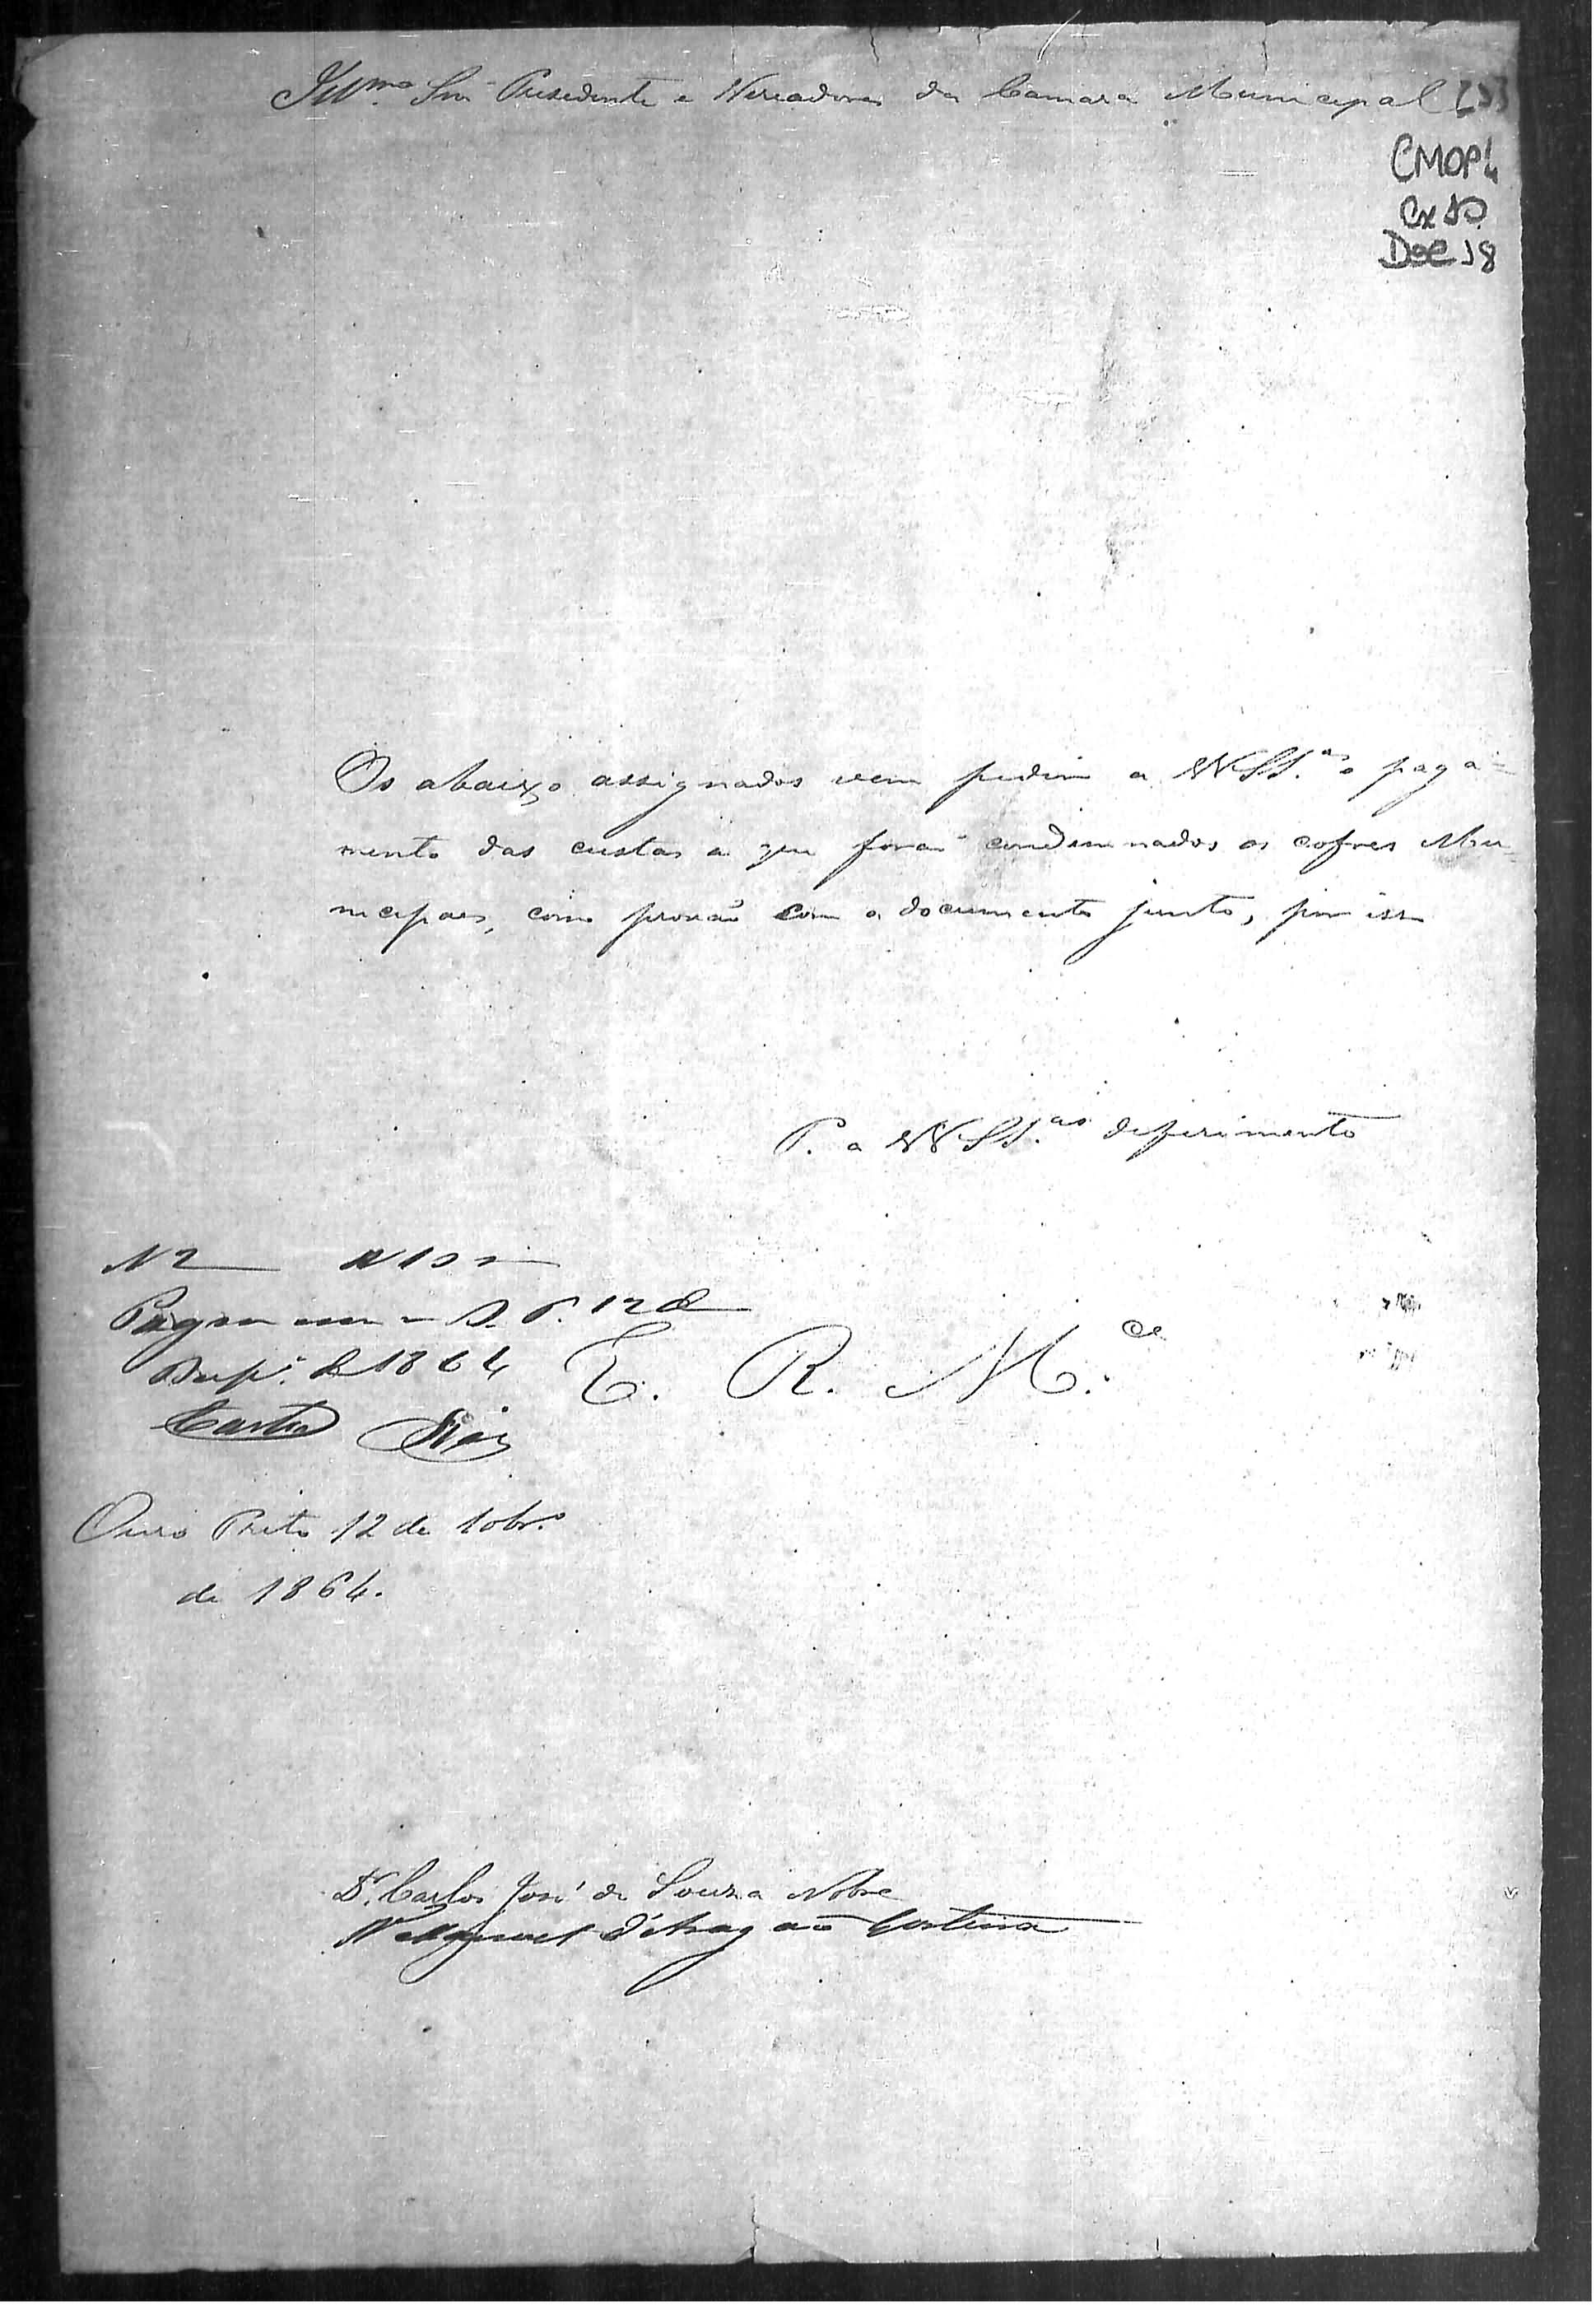 Illmos Snrs Presidente e Vereadores da Camara Municipal
CMOP
Cx
Doc 18
Os abaixo assignados vem pedir a VVSS.as o paga=
mento das custas a que forão condemnados os cofres Mu=
nicipaes, como provão com o documento junto, por isso
P. a VVSS.as deferimento
N 2
12 de
de 1864
E. R. M.ce
Castro Dias
Ouro Preto 12 de 10br.o
de 1864.
Dr. Carlos José de Souza Nobre
Manoel d'Aragão